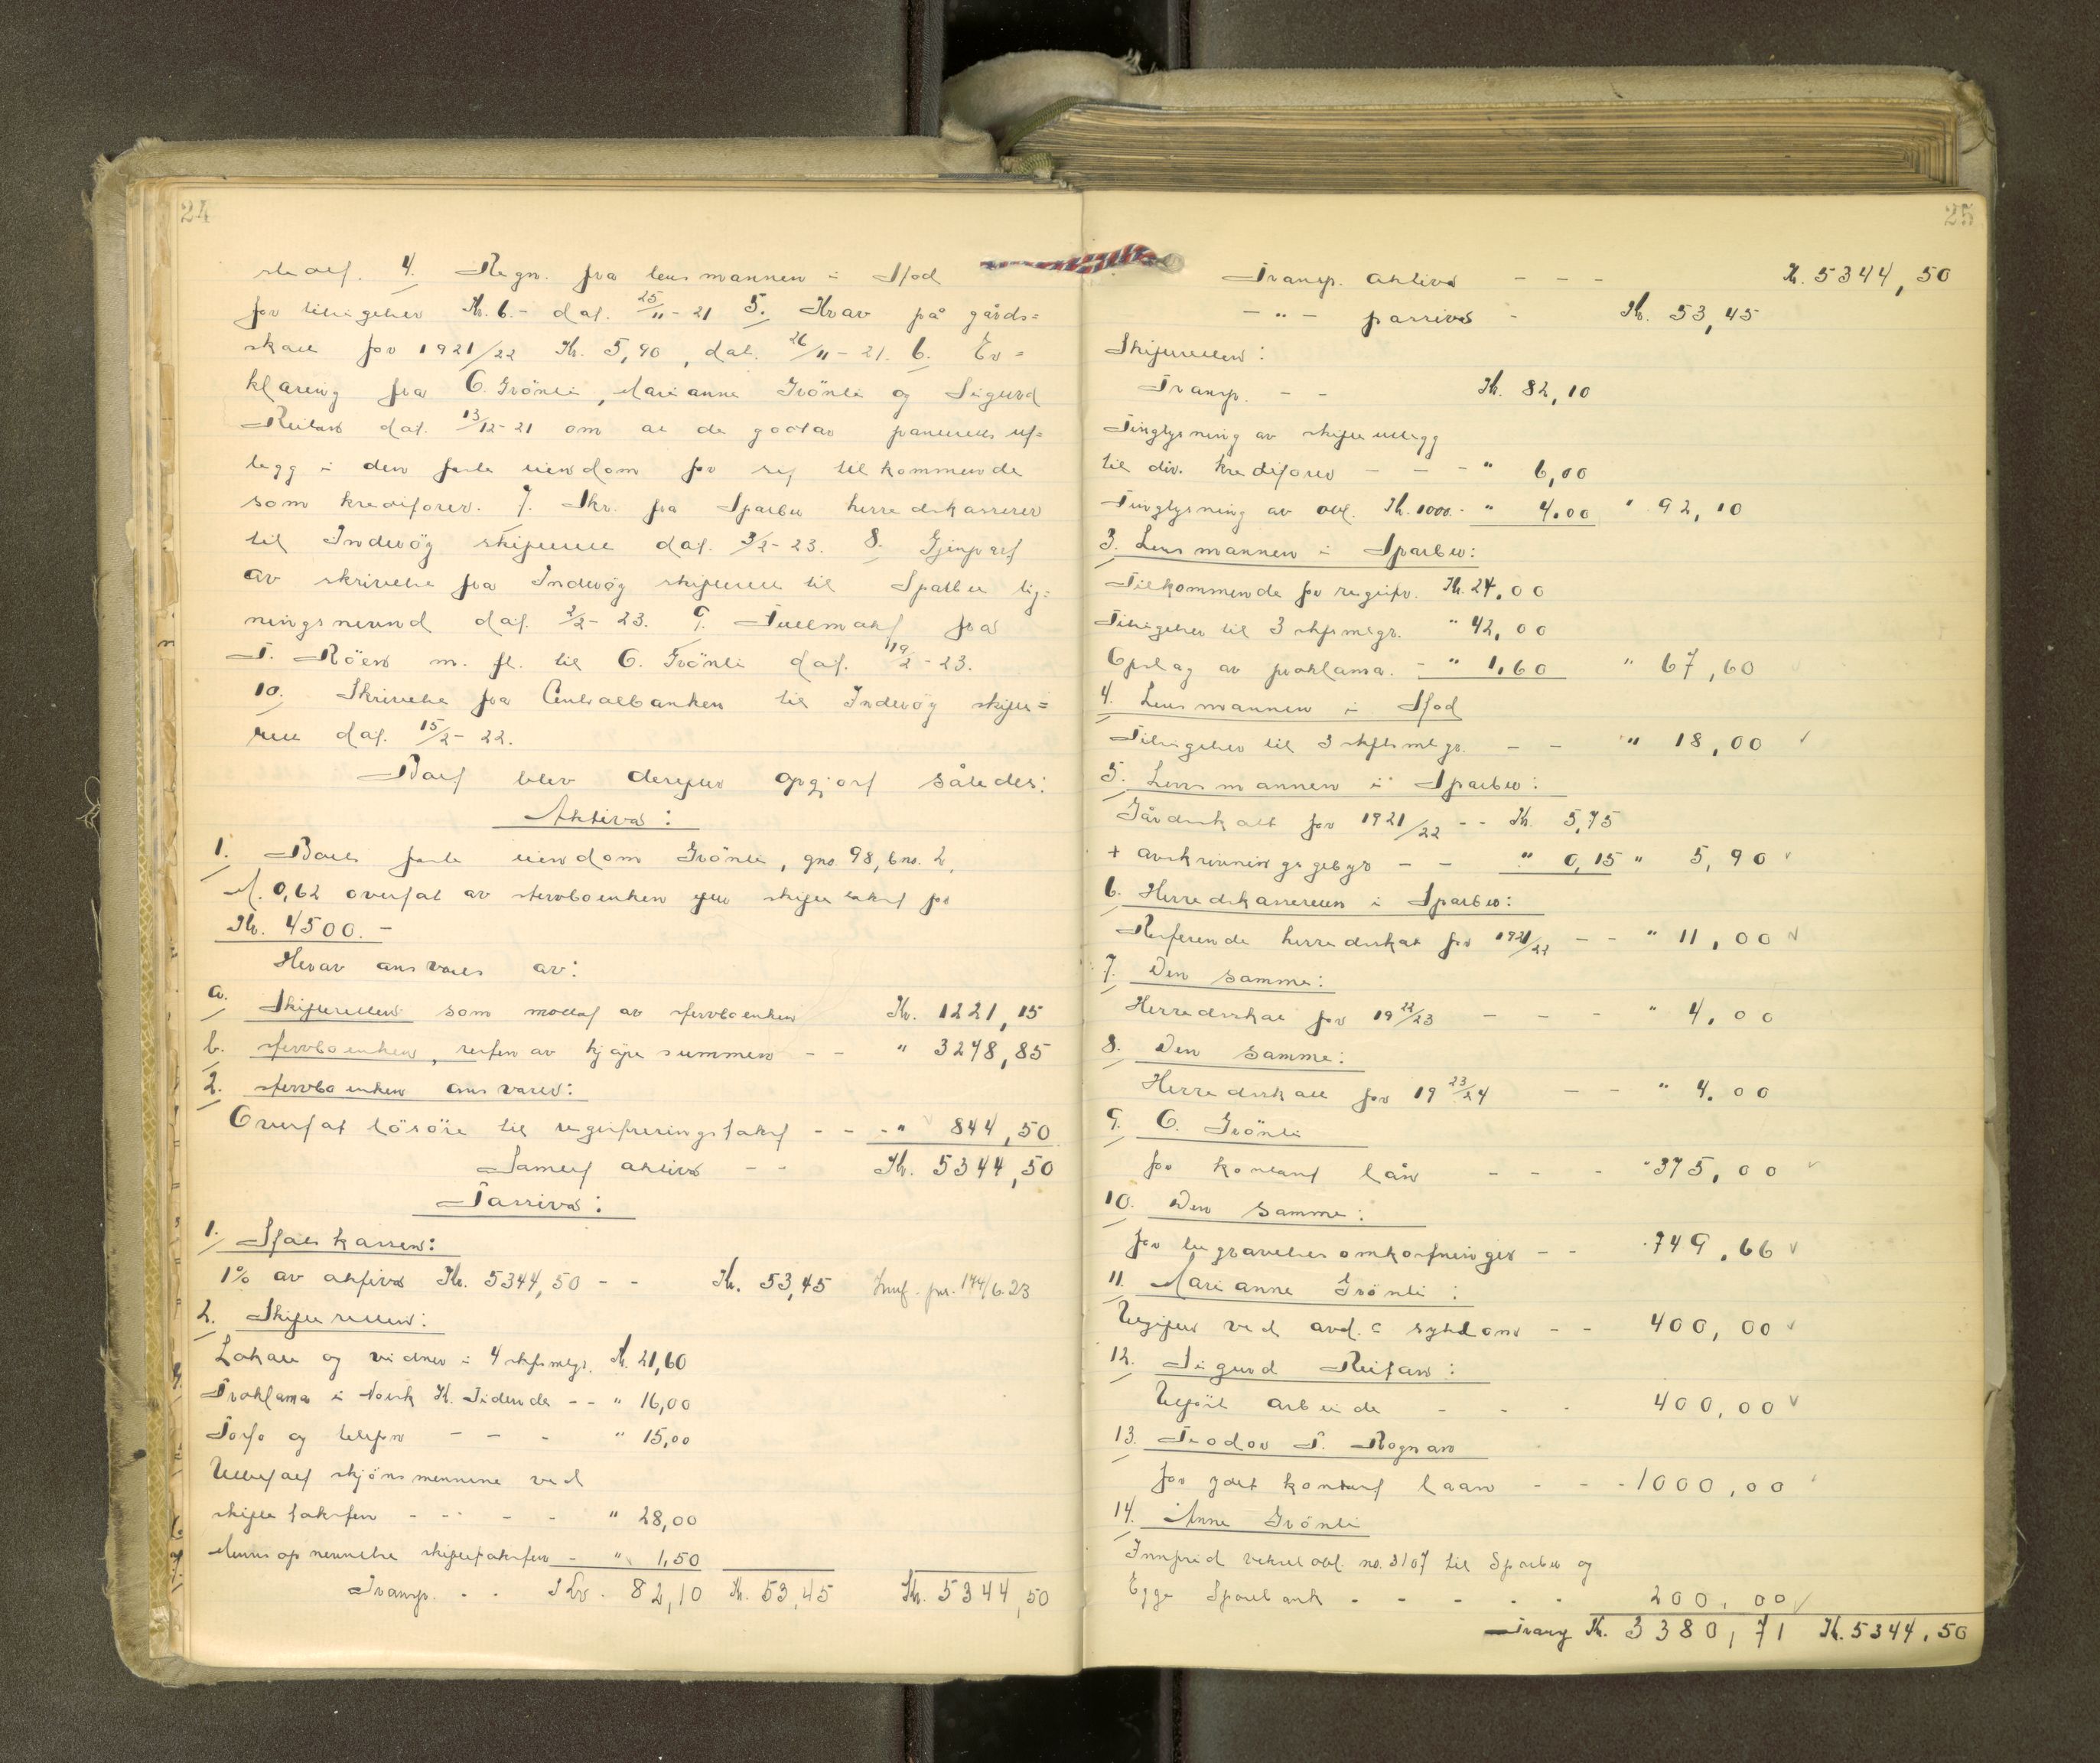 24
stedt. 4. Regn. fra lensmannen i Stod
for tilsigelser Kr. 6.- dat. 25/11-21 5. Krav på gårds=
skatt for 1921/22 Kr. 5,90, dat. 26/11-21. 6. Er=
klæring fra O. Grönli, Marianne Grönli og Sigurd
Reitan dat. 13/12-21 om at de godtar panterets ut=
legg i den faste eiendom for sit tilkommende
som kreditorer. 7. Skr. fra Sparbu herredskasserer
til Inderöy skifterett dat. 3/2-23. 8. Gjenpart
av skrivelse fra Inderöy skifterett til Sparbu lig=
ningsnevnd dat. 2/2-23. 9. Fuldmakt fra
T. Röen m. fl. til O. Grönli dat. 19/2-23.
10. Skrivelse fra Centralbanken til Inderöy skifte=
rett dat. 15/2-22.
Boet blev derefter opgjort således:
Aktiva:
1. Boets faste eiendom Grönli, gno. 98, bno. 2,
M. 0,62 overtat av stervboenken efter skiftetakst for
Kr. 4500.-
Herav ansvares av:
a. Skifteretten som mottat av stervboenken Kr. 1221,15
b. stervboenken, resten av kjøpesummen - - " 3278,85
2. stervboenken ansvarer:
Overtat lösöre til registreringstakst - - - " 844,50
Samlet aktiva - - Kr. 5344,50
Passiva:
1. Statskassen:
1% av aktiva Kr. 5344,50 - - Kr. 53,45
2. Skifteretten:
Lokale og vidner i 4 skfsmlgr. Kr. 21,60
Proklama i Norsk K. Tidende - - " 16,00
Porto og telefon - - - " 15,00
Utbetalt skjönsmennene ved
skiftetaksten - - - - " 28,00
Mennsopnevnelse skiftetaksten - " 1,50
Transp. - - Kr. 82,10 Kr. 53,45 Kr. 5344,50
25
Transp. aktiva - - - Kr. 5344,50
- " - passiva - Kr. 53,45
Skifteretten:
Transp. - - Kr. 82,10
Tinglysning av skifteutlegg
til div. kreditorer - - - " 6,00
Tinglysning av obl. Kr. 1000.- " 4.00 " 92,10
3. Lensmannen i Sparbu:
Tilkommende for registr. Kr. 24,00
Tilsigelser til 3 skfsmlgr. " 42,00
Opslag av proklama. - " 1,60 " 67,60
4. Lensmannen i Stod
Tilsigelser til 3 skftsmlgr. - - " 18,00
5. Lensmannen i Sparbu:
Gårdskatt for 1921/22 - - Kr. 5,75
+ avskrivningsgebyr - - " 0,15 " 5,90
6. Herredskassereren i Sparbu:
Resterende herredskat for 1921/22 - - " 11,00
7. Den samme:
Herredsskat for 1922/23 - - - " 4.00
8. Den samme:
Herredsskatt for 1923/24 - - " 4.00
9. O. Grönli
for kontant lån - - - " 375,00
10. Den samme:
for begravelsesomkostninger - - " 749,66
11. Marianne Grönli:
Utgifter ved avd.s sykdom - - 400,00
12. Sigurd Reitan:
Utfört arbeide - - - 400,00
13. Teodor P. Rognan
for ydet kontant laan - - - 1000,00
14. Anne Grönli
Innfrid veksel obl. no. 3107 til Sparbu og
Egge Sparebank - - - - - 200,00
Transp Kr. 3380,71 Kr. 5344,50